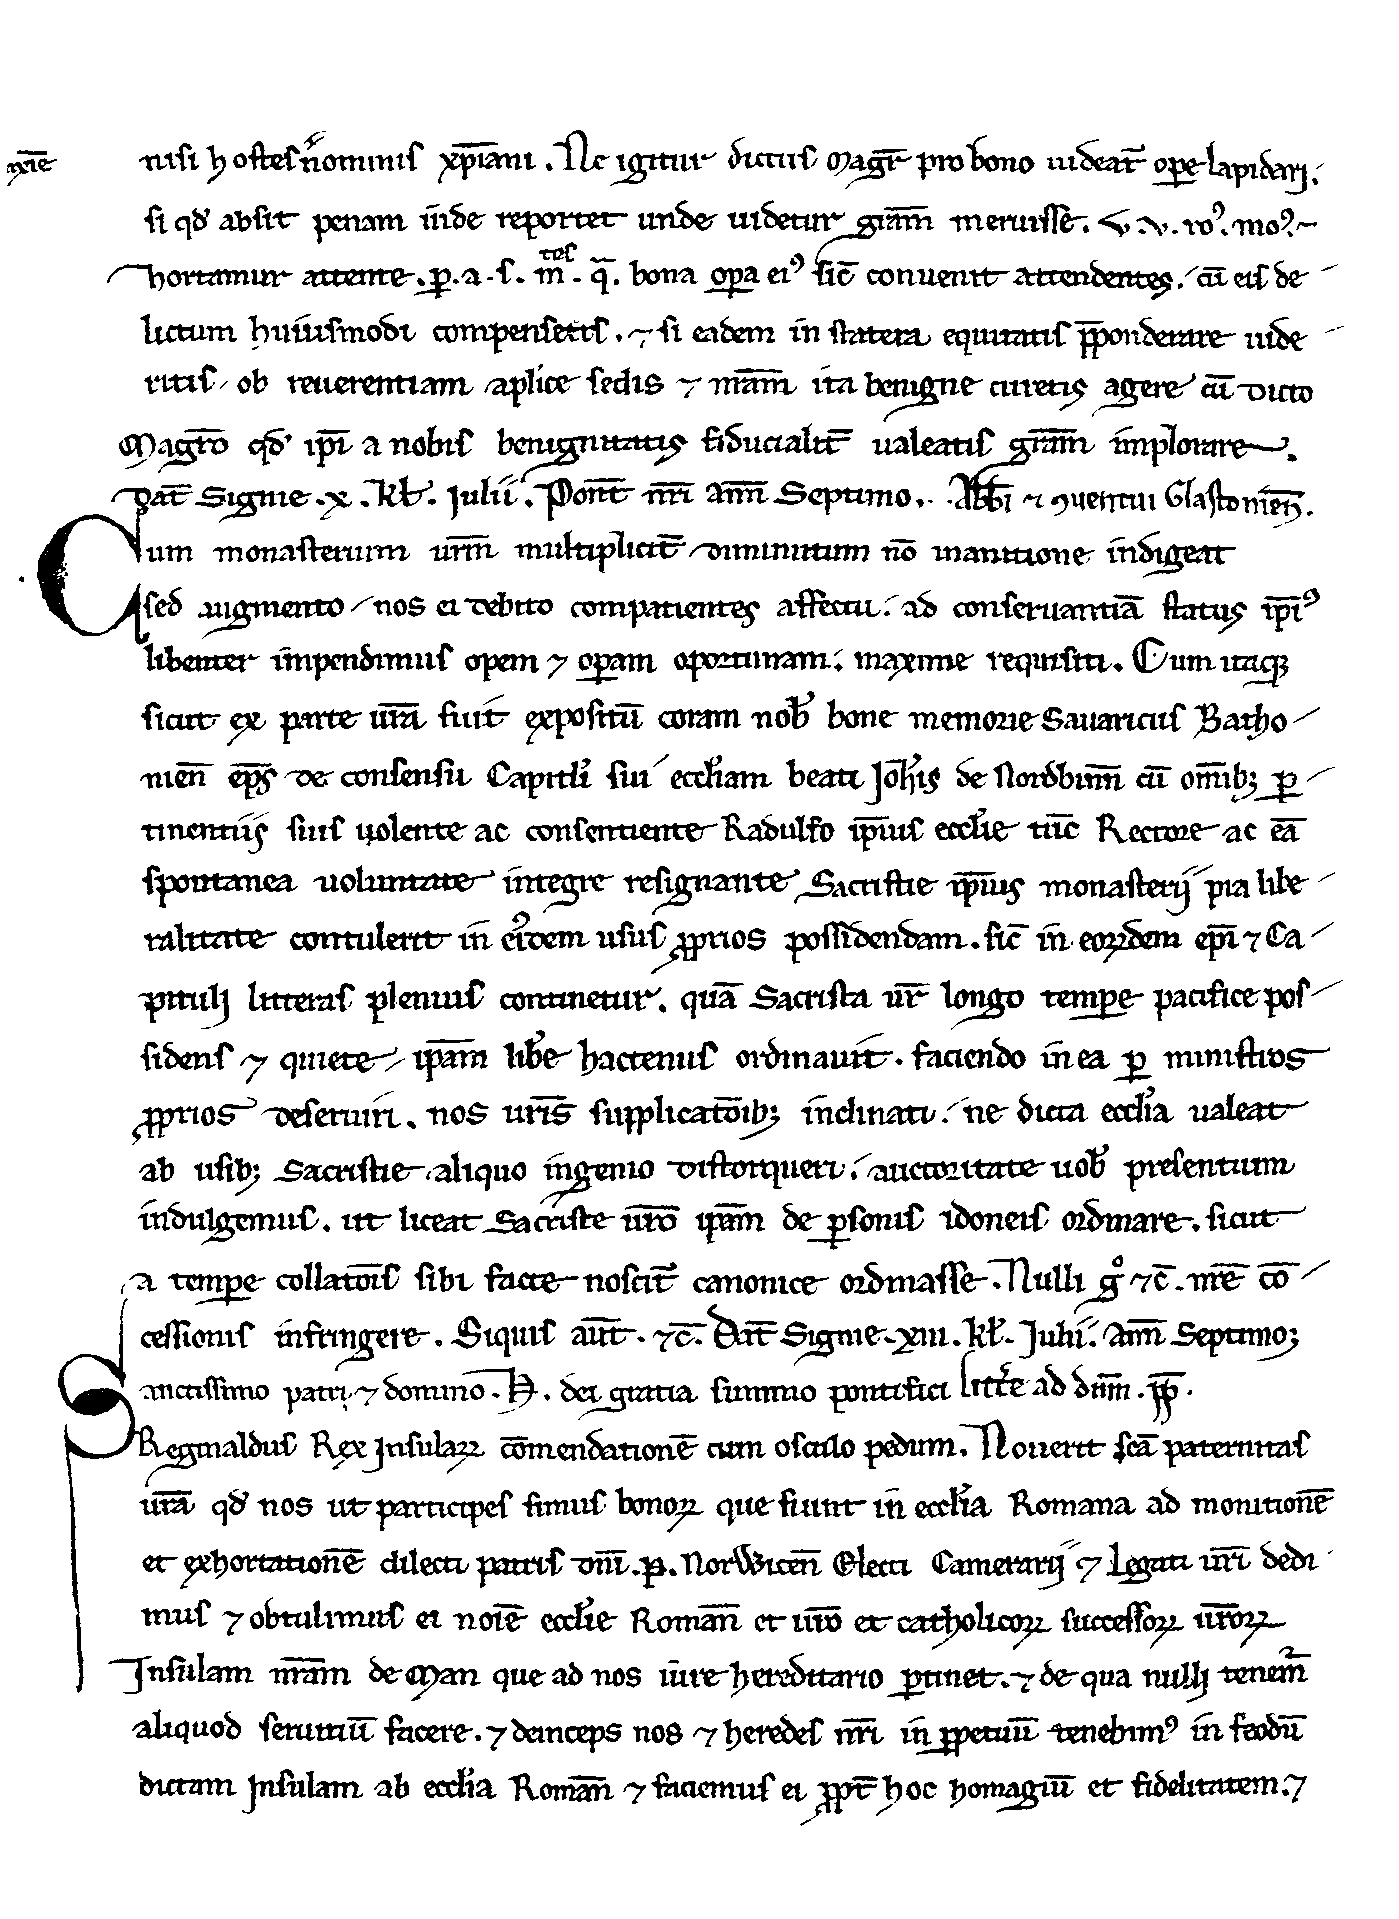 nisi hostes nominis xp̄iani. Ne igitur dictus Magr̄ pro bono uideat᷑ oꝑe lapidari.
si qđ absit penam īnde reportet unde uidetur gr̄am meruisse. v. v. ro⁹. mo⁹.
hortamur attente. ꝑ. a. s. m̄. q̄. bona oꝑa ei⁹ sic̄ conuenit attendentes. cū eis de
lictum huiusmodi compensetis. ⁊ si eadem in statera equitatis p̄ponderare uide
ritis, ob reuerentiam aplice sedis ⁊ nr̄am ita benigne curetis agere cū dicto
Magr̄o qđ ip̄i a nobis benignitatis fiducialit̄ ualeatis gr̄am implorare.
Dat̄ Signie. x. kł. Iulii. Pont̄ nr̄i Ann̄ Septimo. Abb̄i ⁊ ꝯuentui Glastonien̄.
Cum monasterium ur̄m multiplicit̄ diminutum nō inanitione indigeat
sed augmento, nos ei debito compatientes affectu. ad conseruantiā status ip̄i⁹
libenter impendimus opem ⁊ oꝑam oportunam. maxime requisiti. Cum itaqꝫ
sicut ex parte ur̄a fuit expositū coram nob̄ bone memorie Sauaricus Batho
nien̄ ep̄s de consensu Capitłi sui eccłiam beati Ioh̄is de Nordbinn̄ cū om̄ibꝫ ꝑ
tinentiis suis uolente ac consentiente Radulfo ip̄ius eccłie tūc Rectore ac eā
spontanea uoluntate integre resignante Sacristie ip̄ius monasterij pia libe
ralitate contulerit in ei⁹dem usus ꝓprios possidendam. sic̄ in eoꝝdem ep̄i ⁊ Ca
pituli litteras plenius continetur. quā Sacrista ur̄ longo temꝑe pacifice pos
sidens ⁊ quiete, ip̄am lib̄e hactenus ordinauit. faciendo in ea ꝑ ministros
ꝓprios deseruiri. nos ur̄is supplicatōibꝫ inclinati. ne dicta eccłia ualeat
ab usibꝫ Sacristie aliquo ingenio distorqueri. auctoritate uob̄ presentium
indulgemus. ut liceat Sacriste ur̄o ip̄am de ꝑsonis idoneis ordinare. sicut
a temꝑe collatōis sibi facte noscit᷑ canonice ordinasse. Nulli gͦ ⁊c̄. nr̄e cō
cessionis infringere. Siquis aut̄. ⁊c̄. Dat̄ Signie. xiii. kł. Iulii. Ann̄ Septimoꝫ
Sanctissimo patri ⁊ domino. H. dei gratia summo pontifici Litt̄e ad dn̄m. pp̄.
Reginaldus Rex Insulaꝝ cōmendationē cum osculo pedum. Nouerit sc̄a paternitas
ur̄a qđ nos ut participes simus bonoꝝ que fiunt in eccłia Romana ad monitionē
et exhortationē dilecti patris dn̄i. P. Norwicen̄ Electi Camerarij ⁊ Legati ur̄i dedi
mus ⁊ obtulimus ei noīe eccłie Roman̄ et ur̄o et catholicoꝝ successoꝝ ur̄oꝝ
Insulam nr̄am de Man que ad nos iure hereditario ꝑtinet. ⁊ de qua nulli tenem̄
aliquod seruitiū facere. ⁊ deinceps nos ⁊ heredes nr̄i in ꝑpetuū tenebim⁹ in feodū
dictam Insulam ab eccłia Roman̄ ⁊ faciemus ei ꝓpt̄ hoc homagiū et fidelitatem. ⁊